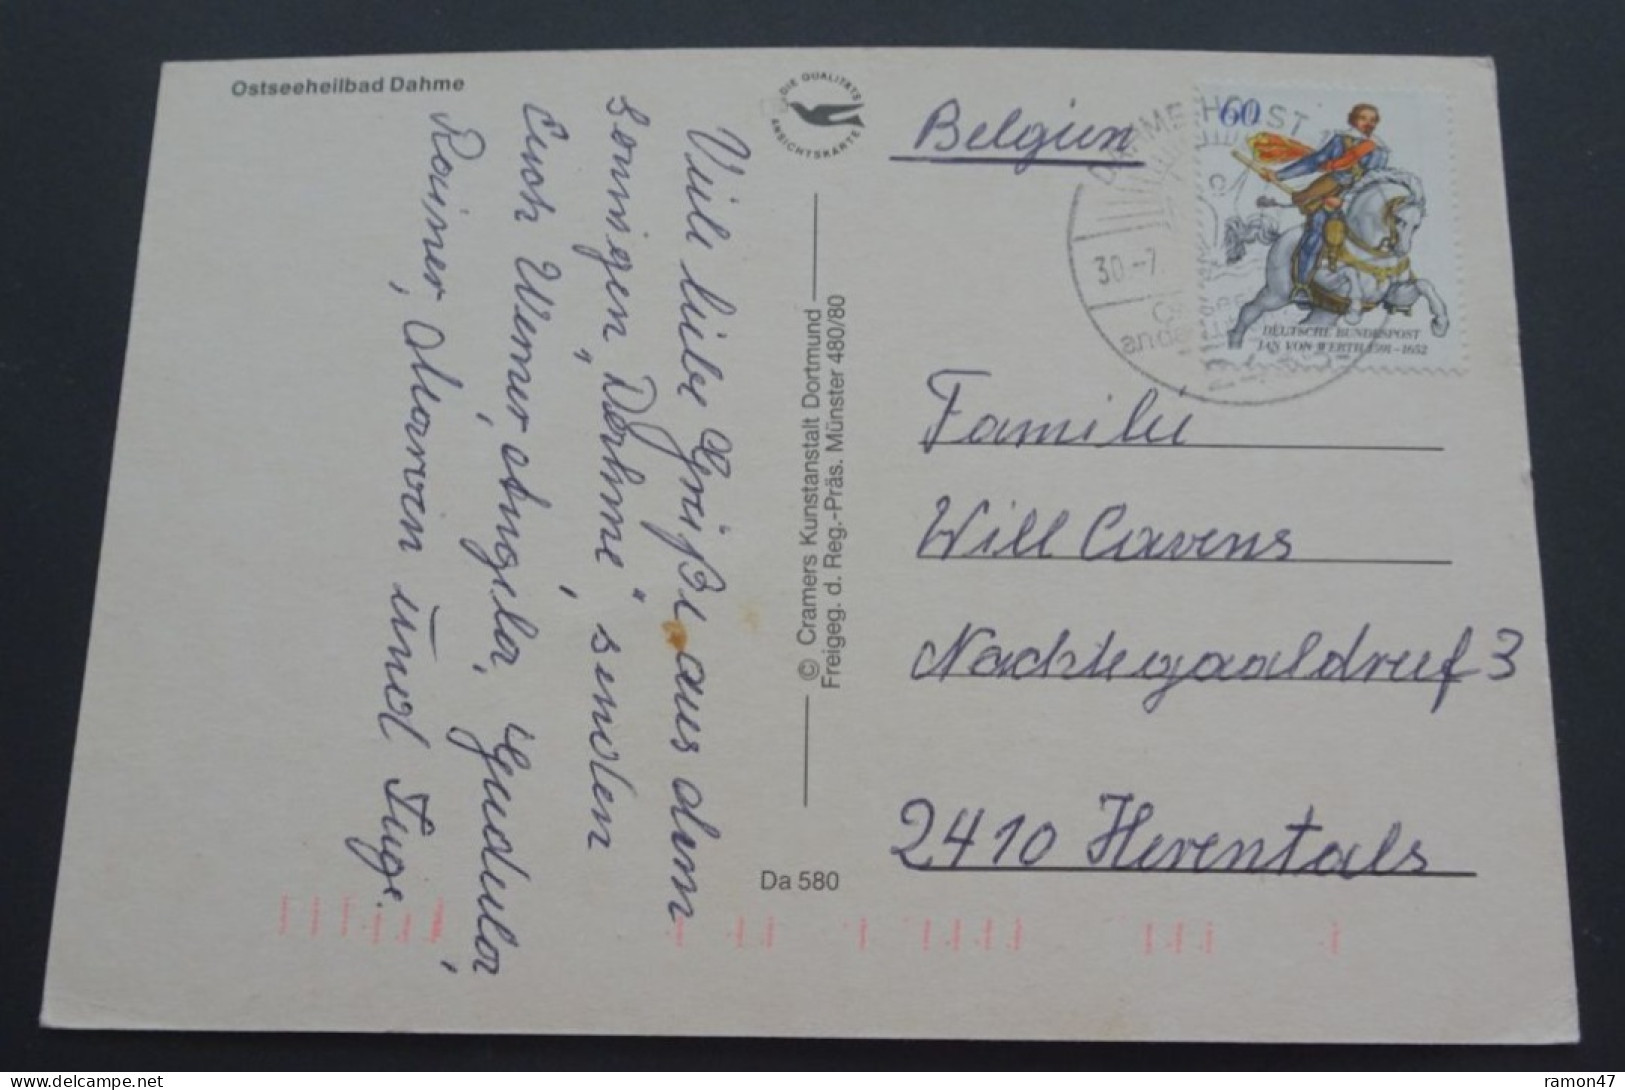 Ostseeheilbad Dahme
DIE QUALITÄTS
ANSICHTSKARTE
Viele liebe Grüße aus dem
sonnigen „Dahme“ senden
Euch Werner, Angela, Gudula,
Rainer, Marvin und Inge.
© Cramers Kunstanstalt Dortmund
Freigeg. d. Reg.-Präs. Münster 480/80
Da 580
Belgien
DAHME HOLST
30.-7.
60
DEUTSCHE BUNDESPOST
JAN VON WERTH 1591-1652
Familie
Will Cavens
Nachtegaaldreef 3
2410 Herentals
ramon47